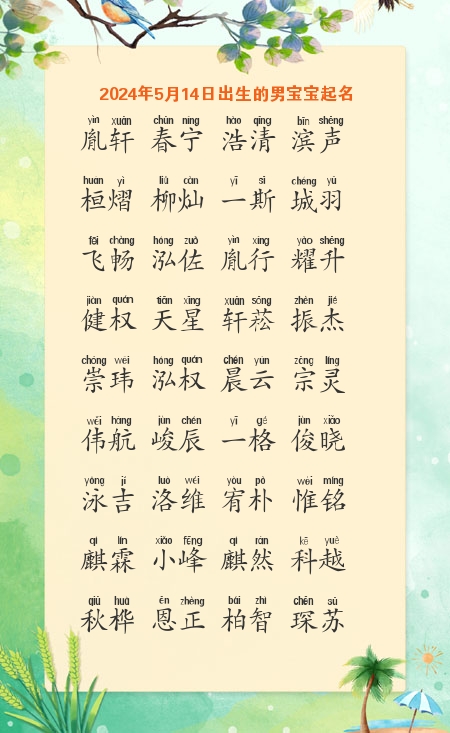 2024年5月14日出生的男宝宝起名
yìn xuān chūn níng hào qīng bīn shēng
胤轩 春宁 浩清 滨声
huán yì liǔ càn yī sī chéng yǔ
桓熠 柳灿 一斯 城羽
fēi chàng hóng zuǒ yìn xíng yào shēng
飞畅 泓佐 胤行 耀升
jiàn quán tiān xīng xuān sōng zhèn jié
健权 天星 轩菘 振杰
chóng wěi hóng quán chén yún zōng líng
崇玮 泓权 晨云 宗灵
wěi háng jùn chén yī gé jùn xiǎo
伟航 峻辰 一格 俊晓
yǒng jí luò wéi yòu pǔ wéi míng
泳吉 洛维 宥朴 惟铭
qí lín xiǎo fēng qí rán kē yuè
麒霖 小峰 麒然 科越
qiū huà ēn zhèng bǎi zhì chēn sū
秋桦 恩正 柏智 琛苏